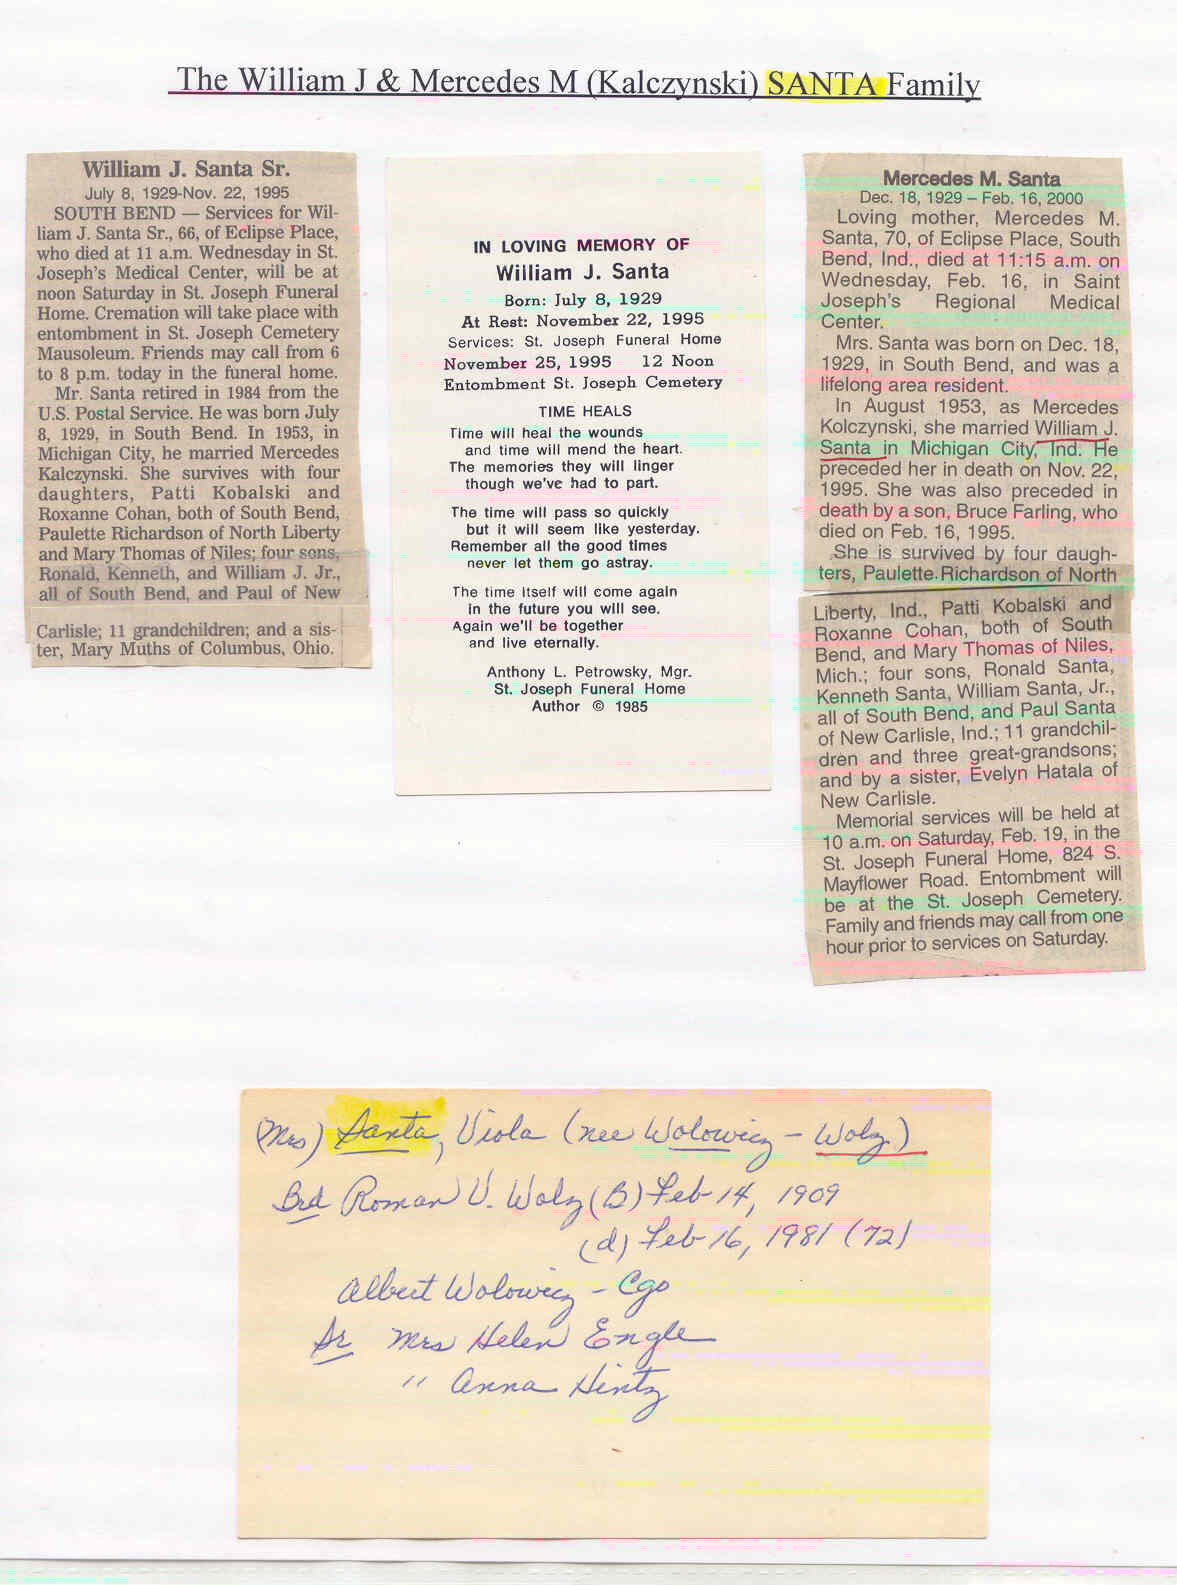 The William J & Mercedes M (Kalczynski) SANTA Family
William J. Santa Sr.
July 8, 1929-Nov. 22, 1995
SOUTH BEND — Services for Wil-
liam J. Santa Sr., 66, of Eclipse Place,
who died at 11 a.m. Wednesday in St.
Joseph's Medical Center, will be at
noon Saturday in St. Joseph Funeral
Home. Cremation will take place with
entombment in St. Joseph Cemetery
Mausoleum. Friends may call from 6
to 8 p.m. today in the funeral home.
Mr. Santa retired in 1984 from the
U.S. Postal Service. He was born July
8, 1929, in South Bend. In 1953, in
Michigan City, he married Mercedes
Kalczynski. She survives with four
daughters, Patti Kobalski and
Roxanne Cohan, both of South Bend,
Paulette Richardson of North Liberty
and Mary Thomas of Niles; four sons,
Ronald, Kenneth, and William J. Jr.,
all of South Bend, and Paul of New
Carlisle; 11 grandchildren; and a sis-
ter, Mary Muths of Columbus, Ohio.
IN LOVING MEMORY OF
William J. Santa
Born: July 8, 1929
At Rest: November 22, 1995
Services: St. Joseph Funeral Home
November 25, 1995 12 Noon
Entombment St. Joseph Cemetery
TIME HEALS
Time will heal the wounds
and time will mend the heart.
The memories they will linger
though we've had to part.
The time will pass so quickly
but it will seem like yesterday.
Remember all the good times
never let them go astray.
The time itself will come again
in the future you will see.
Again we'll be together
and live eternally.
Anthony L. Petrowsky, Mgr.
St. Joseph Funeral Home
Author © 1985
Mercedes M. Santa
Dec. 18, 1929 – Feb. 16, 2000
Loving mother, Mercedes M.
Santa, 70, of Eclipse Place, South
Bend, Ind., died at 11:15 a.m. on
Wednesday, Feb. 16, in Saint
Joseph's Regional Medical
Center.
Mrs. Santa was born on Dec. 18,
1929, in South Bend, and was a
lifelong area resident.
In August 1953, as Mercedes
Kolczynski, she married William J.
Santa in Michigan City, Ind. He
preceded her in death on Nov. 22,
1995. She was also preceded in
death by a son, Bruce Farling, who
died on Feb. 16, 1995.
She is survived by four daugh-
ters, Paulette Richardson of North
Liberty, Ind., Patti Kobalski and
Roxanne Cohan, both of South
Bend, and Mary Thomas of Niles,
Mich.; four sons, Ronald Santa,
Kenneth Santa, William Santa, Jr.,
all of South Bend, and Paul Santa
of New Carlisle, Ind.; 11 grandchil-
dren and three great-grandsons;
and by a sister, Evelyn Hatala of
New Carlisle.
Memorial services will be held at
10 a.m. on Saturday, Feb. 19, in the
St. Joseph Funeral Home, 824 S.
Mayflower Road. Entombment will
be at the St. Joseph Cemetery.
Family and friends may call from one
hour prior to services on Saturday.
(Mrs) Santa, Viola (nee Wolowicz – Wolz)
Brd Roman V. Wolz (B) Feb 14, 1909
(d) Feb 16, 1981 (72)
Albert Wolowicz – Cgo
Sr Mrs Helen Engle
" Anna Hintz